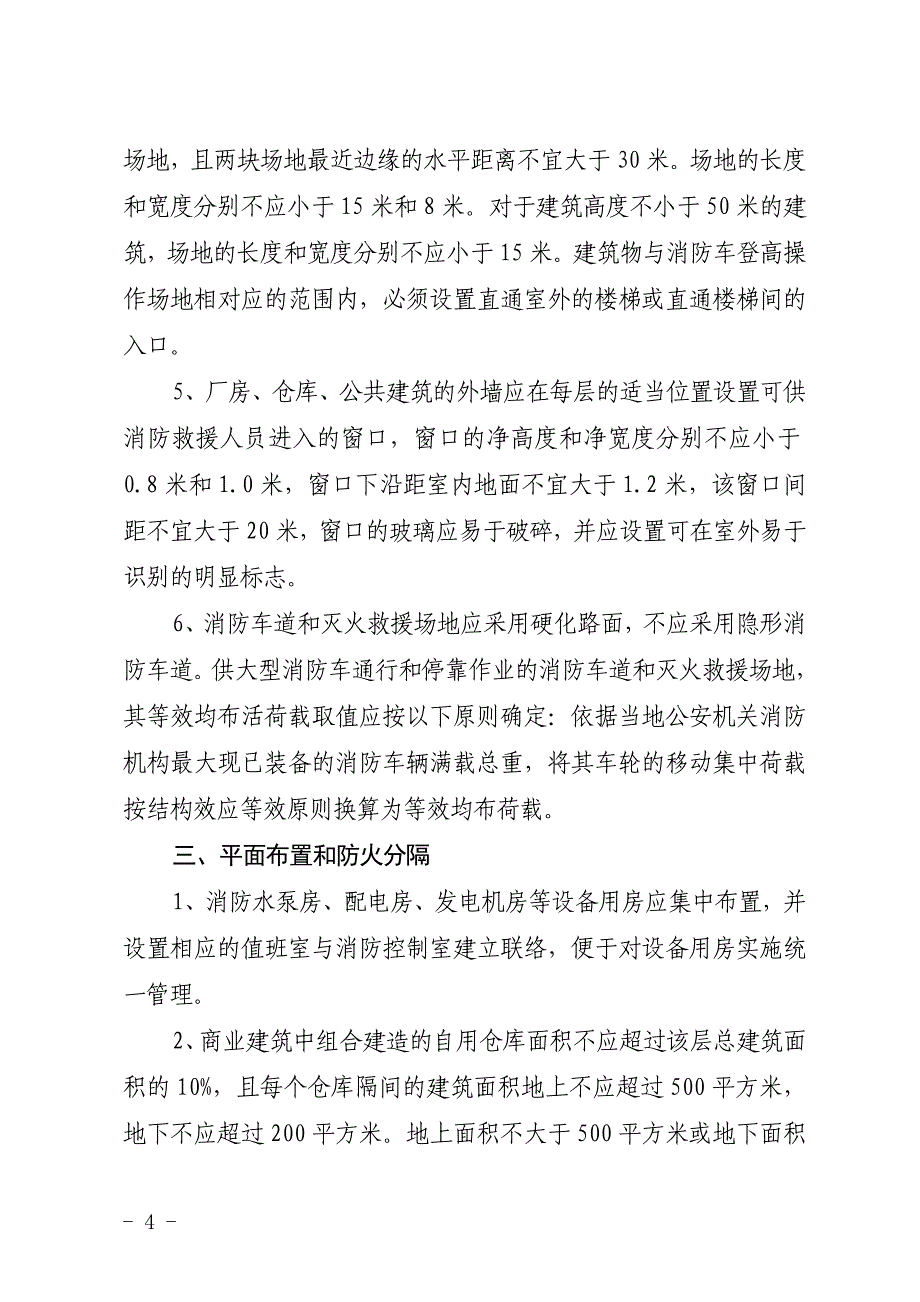 场地，且两块场地最近边缘的水平距离不宜大于 30 米。场地的长度
和宽度分别不应小于 15 米和 8 米。对于建筑高度不小于 50 米的建
筑，场地的长度和宽度分别不应小于 15 米。建筑物与消防车登高操
作场地相对应的范围内，必须设置直通室外的楼梯或直通楼梯间的
入口。
5、厂房、仓库、公共建筑的外墙应在每层的适当位置设置可供
消防救援人员进入的窗口，窗口的净高度和净宽度分别不应小于
0.8 米和 1.0 米，窗口下沿距室内地面不宜大于 1.2 米，该窗口间
距不宜大于 20 米，窗口的玻璃应易于破碎，并应设置可在室外易于
识别的明显标志。
6、消防车道和灭火救援场地应采用硬化路面，不应采用隐形消
防车道。供大型消防车通行和停靠作业的消防车道和灭火救援场地，
其等效均布活荷载取值应按以下原则确定：依据当地公安机关消防
机构最大现已装备的消防车辆满载总重，将其车轮的移动集中荷载
按结构效应等效原则换算为等效均布荷载。
三、平面布置和防火分隔
1、消防水泵房、配电房、发电机房等设备用房应集中布置，并
设置相应的值班室与消防控制室建立联络，便于对设备用房实施统
一管理。
2、商业建筑中组合建造的自用仓库面积不应超过该层总建筑面
积的 10%，且每个仓库隔间的建筑面积地上不应超过 500 平方米，
地下不应超过 200 平方米。地上面积不大于 500 平方米或地下面积
- 4 -